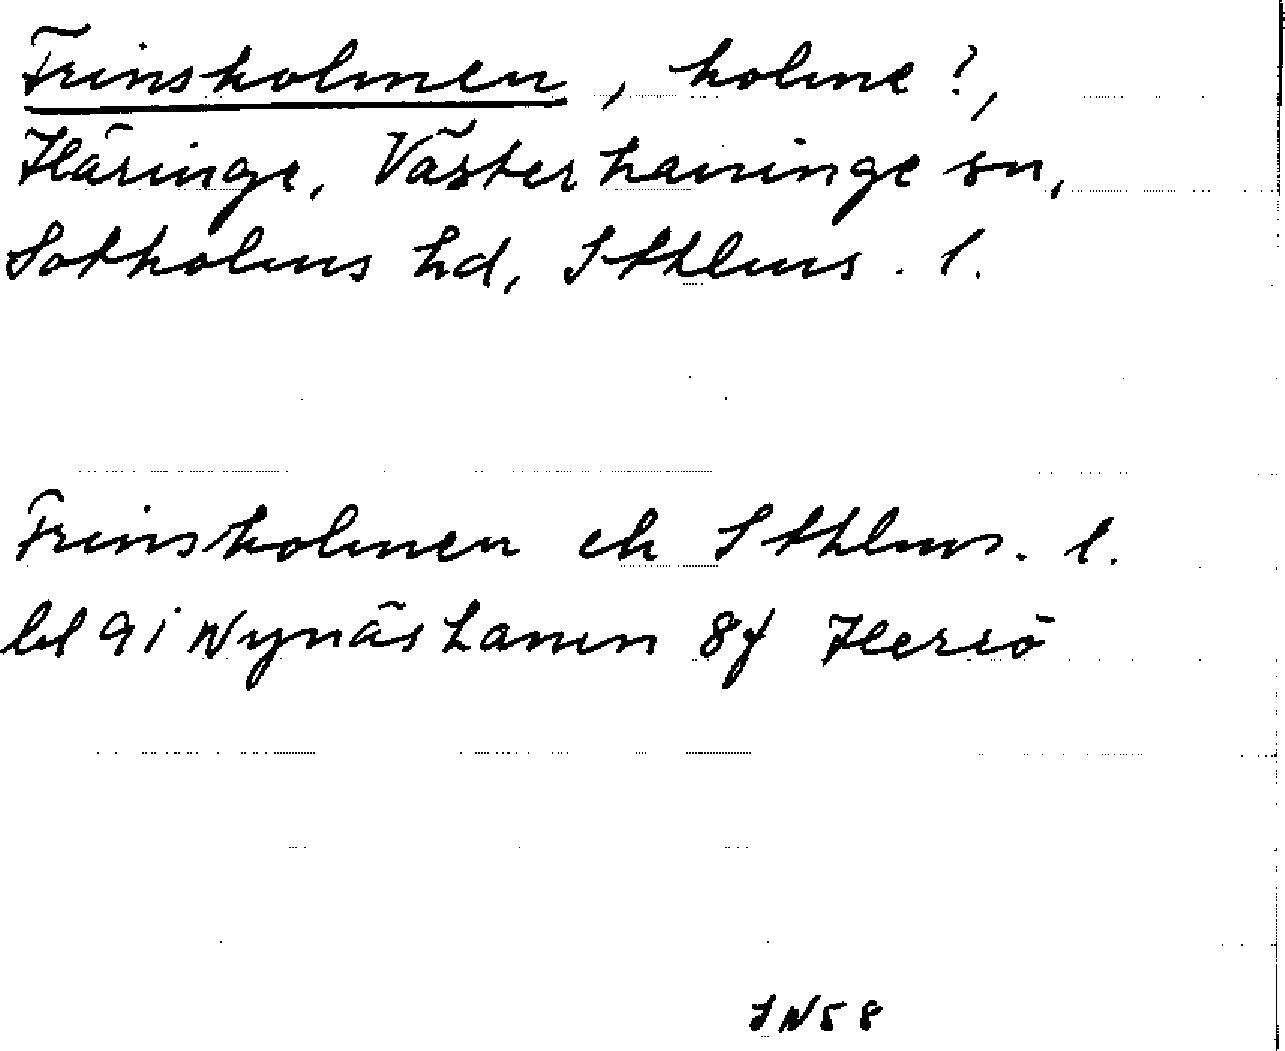 Frinsholmen, holme?,
Häringe, Västerhaninge sn,
Sotholms hd, Sthlms. l.
Frinsholmen ek Sthlms. l.
bl 9i Nynäshamn 8f Herrö
IN58